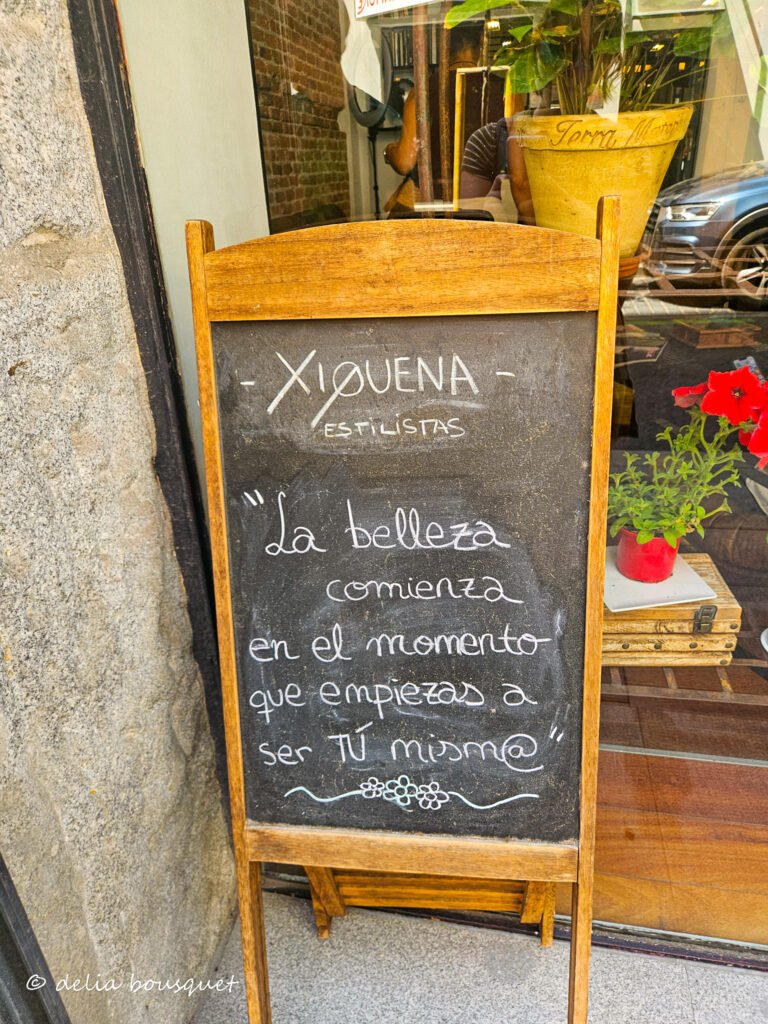 Terra Mar
- XIQUENA -
ESTILISTAS
"La belleza
comienza
en el momento
que empiezas a
ser TÚ mism@"
© delia bousquet